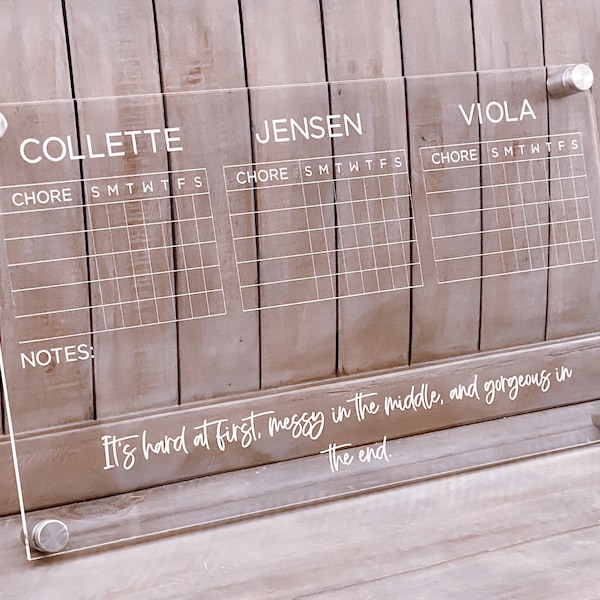 COLLETTE JENSEN VIOLA
CHORE S M T W T F S CHORE S M T W T F S CHORE S M T W T F S
NOTES:
It's hard at first, messy in the middle, and gorgeous in
the end.